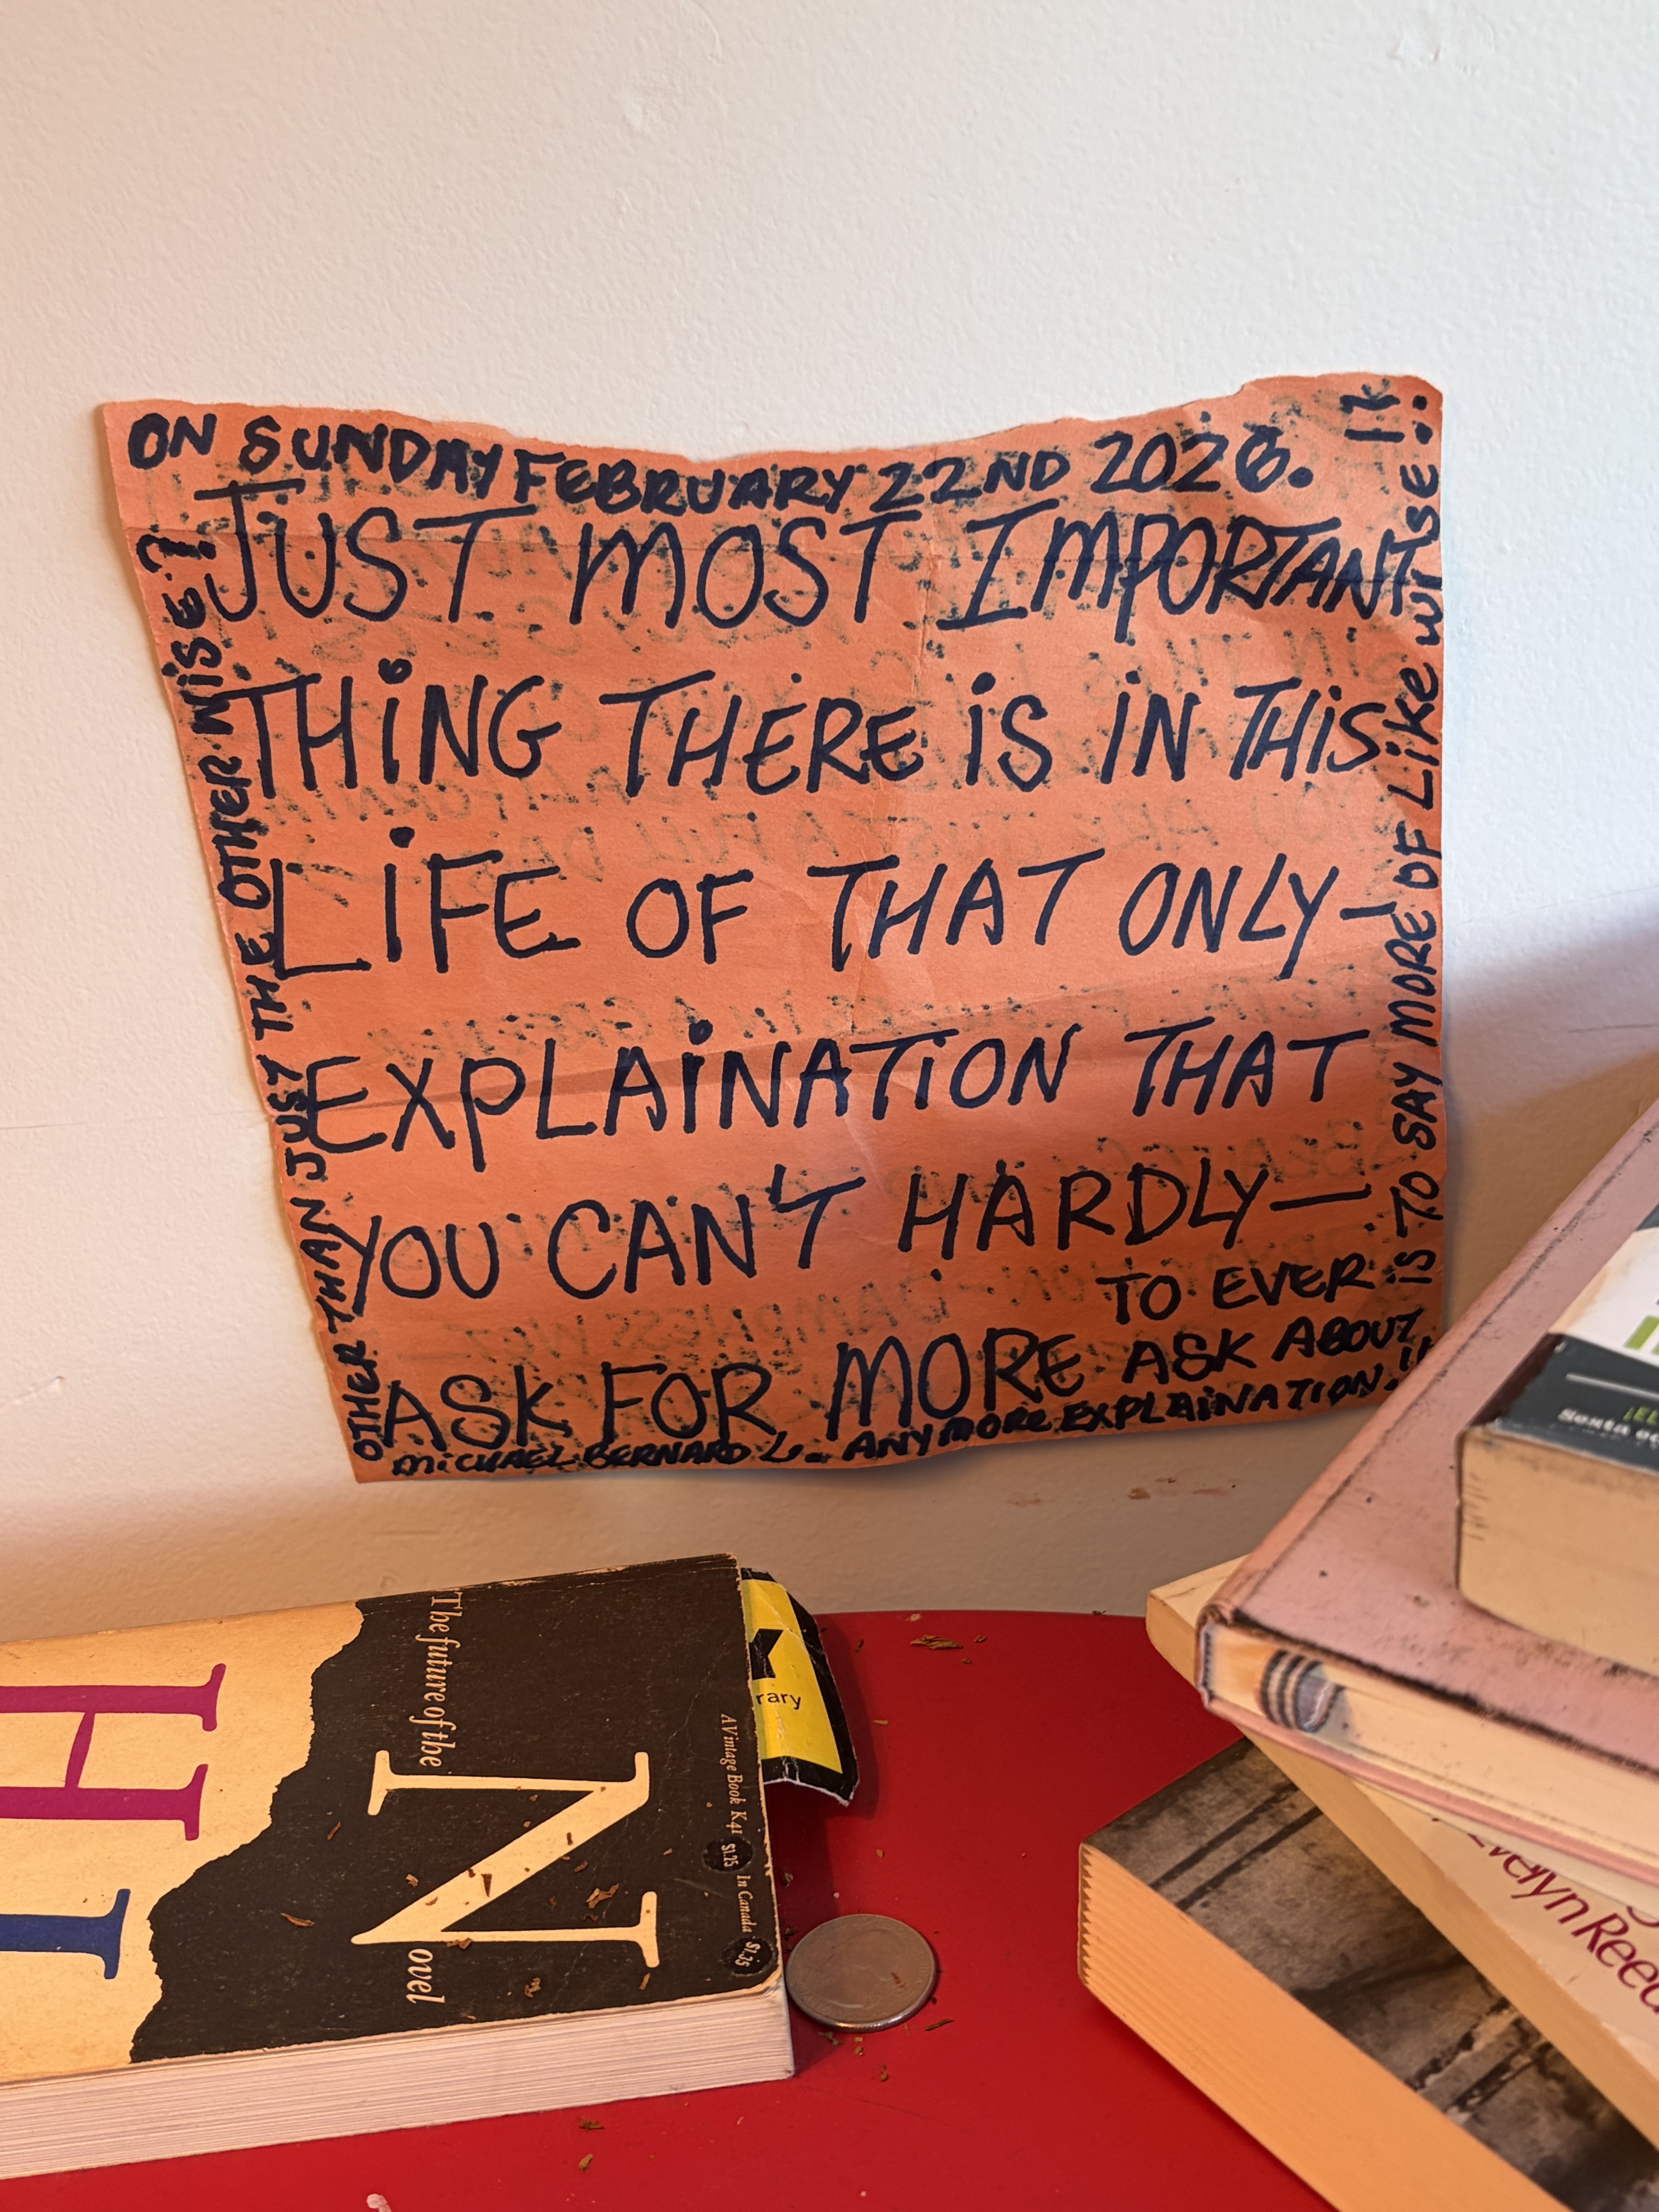 ON SUNDAY FEBRUARY 22ND 2026.
JUST MOST IMPORTANT
THING THERE IS IN THIS
LIFE OF THAT ONLY—
EXPLAINATION THAT
YOU CAN'T HARDLY—
TO EVER
ASK FOR MORE ASK ABOUT
MICHAEL BERNARD L. ANYMORE EXPLAINATION.!!
OTHER THAN JUST THE OTHER WISE?
IS TO SAY MORE OF LIKE WISE!.
The future of the
Novel
A Vintage Book K41 $1.25 In Canada $1.35
H
I
rary
Sexta
Evelyn Reed